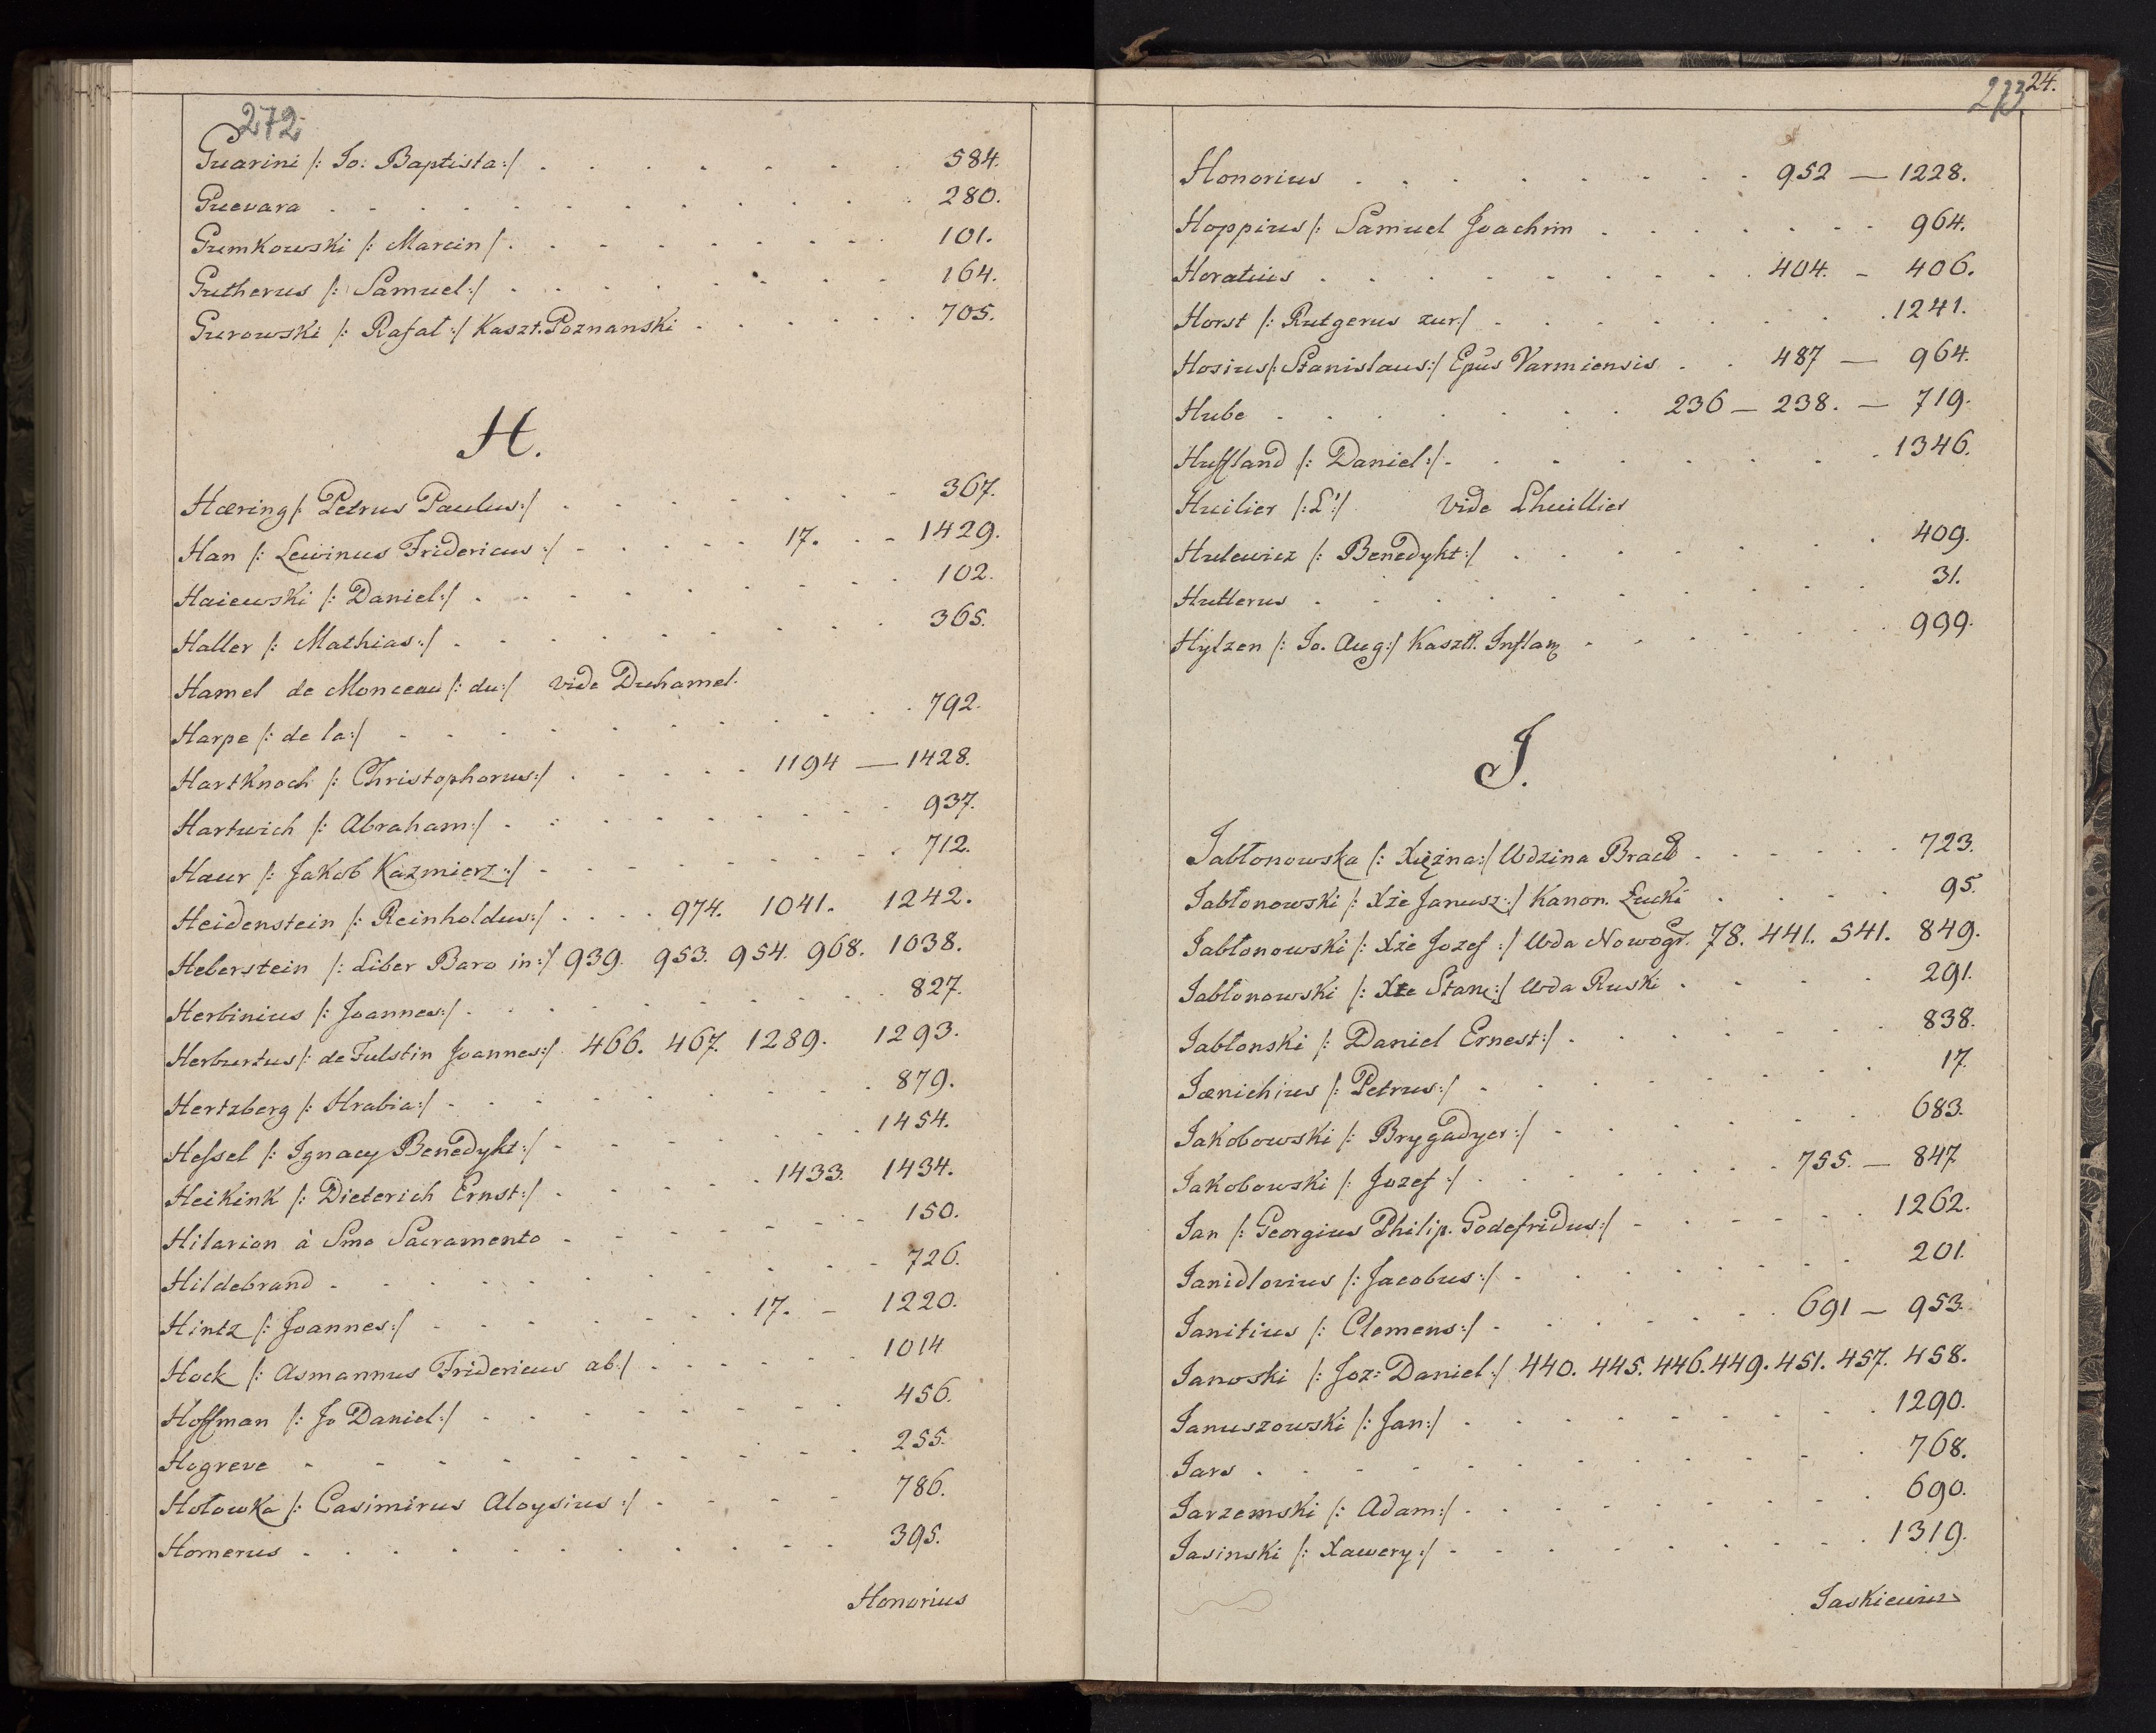 272
Guarini /: Jo: Baptista :/ . . . . . . . 584.
Guevara . . . . . . . . . . 280.
Gumkowski /: Marcin / . . . . . . . 101.
Gutherus /: Samuel :/ . . . . . . . 164.
Gurowski /: Rafał :/ Kaszt. Poznanski . . . . . . 705.
H.
Hæring /: Petrus Paulus :/ . . . . . . 367.
Han /: Lewinus Fridericus :/ . . . . . 17. . - 1429.
Haiewski /: Daniel :/ . . . . . . . . 102.
Haller /: Mathias :/ . . . . . . . . 365.
Hamel de Monceau /: du :/ vide Duhamel.
Harpe /: de la :/ . . . . . . . . . 792.
Hartknoch /: Christophorus :/ . . . . . 1194 — 1428.
Hartwich /: Abraham :/ . . . . . . . . 937.
Haur /: Jakob Kazmierz :/ . . . . . . . 712.
Heidenstein /: Reinholdus :/ . . . . 974. 1041. 1242.
Heberstein /: Liber Baro in :/ 939. 953. 954. 968. 1038.
Herbinius /: Joannes :/ . . . . . . . . 827.
Herburtus /: de Fulstin Joannes :/ 466. 467. 1289. 1293.
Hertzberg /: Hrabia :/ . . . . . . . . 879.
Hessel /: Ignacy Benedykt :/ . . . . . . 1454.
Heikink /: Dieterich Ernst :/ . . . . . 1433. 1434.
Hilarion à Smo Sacramento . . . . . . 150.
Hildebrand . . . . . . . . . . 726.
Hintz /: Joannes :/ . . . . . . 17. - 1220.
Hock /: Asmannus Fridericus ab :/ . . . . . 1014
Hoffman /: Jo Daniel :/ . . . . . . . 456.
Hogreve . . . . . . . . . . 255.
Hołowka /: Casimirus Aloysius :/ . . . . 786.
Homerus . . . . . . . . . . 395.
Honorius
273 24.
Honorius . . . . . . . . 952 — 1228.
Hoppius /: Samuel Joachim . . . . . . . 964.
Horatius . . . . . . . . 404. - 406.
Horst /: Rutgerus zur / . . . . . . . . 1241.
Hosius /: Stanislaus :/ Epus Varmiensis . . 487 — 964.
Hube . . . . . . . 236 — 238. — 719.
Huffland /: Daniel :/ . . . . . . . . 1346.
Huilier /: L' :/ vide Lhuillier
Hulewicz /: Benedykt :/ . . . . . . . 409.
Hutterus . . . . . . . . . . 31.
Hylzen /: Jo. Aug :/ Kasztl. Inflan . . . . . . 999.
J.
Jabłonowska /: Xiężna :/ Wdzina Bracł . . . . . . 723.
Jabłonowski /: Xże Janusz :/ Kanon. Łucki . . . . 95.
Jabłonowski /: Xże Jozef :/ Wda Nowogr. 78. 441. 541. 849.
Jabłonowski /: Xże Stan :/ Wda Ruski . . . . 291.
Jabłonski /: Daniel Ernest :/ . . . . . . 838.
Jænichius /: Petrus :/ . . . . . . . . 17.
Jakobowski /: Brygadyer :/ . . . . . . 683.
Jakobowski /: Jozef :/ . . . . . . 755. — 847
Jan /: Georgius Philip. Godefridus :/ . . . . . 1262.
Janidlovius /: Jacobus :/ . . . . . . . 201.
Janitius /: Clemens :/ . . . . . . 691 — 953.
Janoski /: Joz: Daniel :/ 440. 445. 446. 449. 451. 457. 458.
Januszowski /: Jan :/ . . . . . . . . 1290.
Jars . . . . . . . . . . . 768.
Jarzemski /: Adam :/ . . . . . . . . 690.
Jasinski /: Xawery :/ . . . . . . . . 1319.
Jaskiewicz